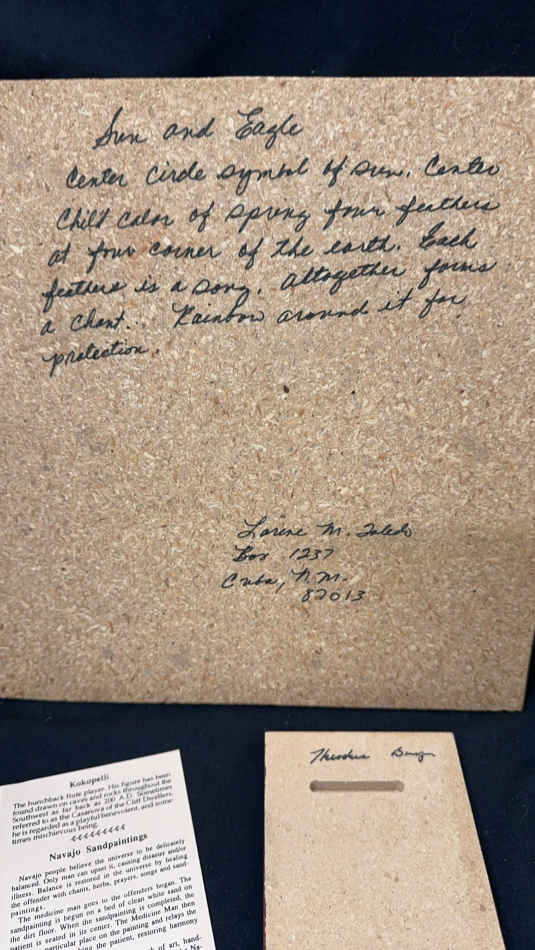 Sun and Eagle
Center Circle symbol of sun. Center
Chilt color of spring four feathers
at four corner of the earth. Each
feathers is a song. altogether forms
a chant.. Rainbow around it for
protection.
Lorine M. Toledo
Box 1237
Cuba, N.M.
87013
Kokopelli
The hunchback flute player. His figure has been
found drawn on caves and rocks throughout the
Southwest as far back as 200 A.D. Sometimes
referred to as the Casanova of the Cliff Dwellers,
he is regarded as a playful benevolent, and some-
times mischievous being.
Navajo Sandpaintings
Navajo people believe the universe to be delicately
balanced. Only man can upset it, causing disaster and/or
illness. Balance is restored in the universe by healing
the offender with chants, herbs, prayers, songs and sand-
paintings.
The medicine man goes to the offenders hogan. The
sandpainting is begun on a bed of clean white sand on
the dirt floor. When the sandpainting is completed, the
patient is seated in its center. The Medicine Man then
particular place on the painting and relays the
the patient, restoring harmony
of art, hand-
Na-